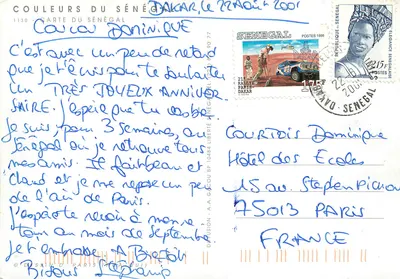 COULEURS DU SÉNÉGAL
CARTE DU SÉNÉGAL
DAKAR, le 22 AOÛT 2001
Coucou Dominique
C'est avec un peu de retard
que je t'écris pour te souhaiter
un TRÈS JOYEUX ANNIVER
SAIRE. J'espère que tu
Je suis pour 3 semaines, au
Sénégal où je retrouve tous
mes amis. Il fait beau et
chaud et je me repose un peu
de l'air de Paris.
J'espère te revoir à mon re
tour au mois de Septembre
Je t'embrasse. A Bientôt
Bisous
SENEGAL
PARIS
DAKAR
REPUBLIQUE DU SENEGAL
DAKAR
SENEGAL
COURTOIS Dominique
Hôtel des Ecoles
15 av. Stephen Pichon
75013 PARIS
FRANCE